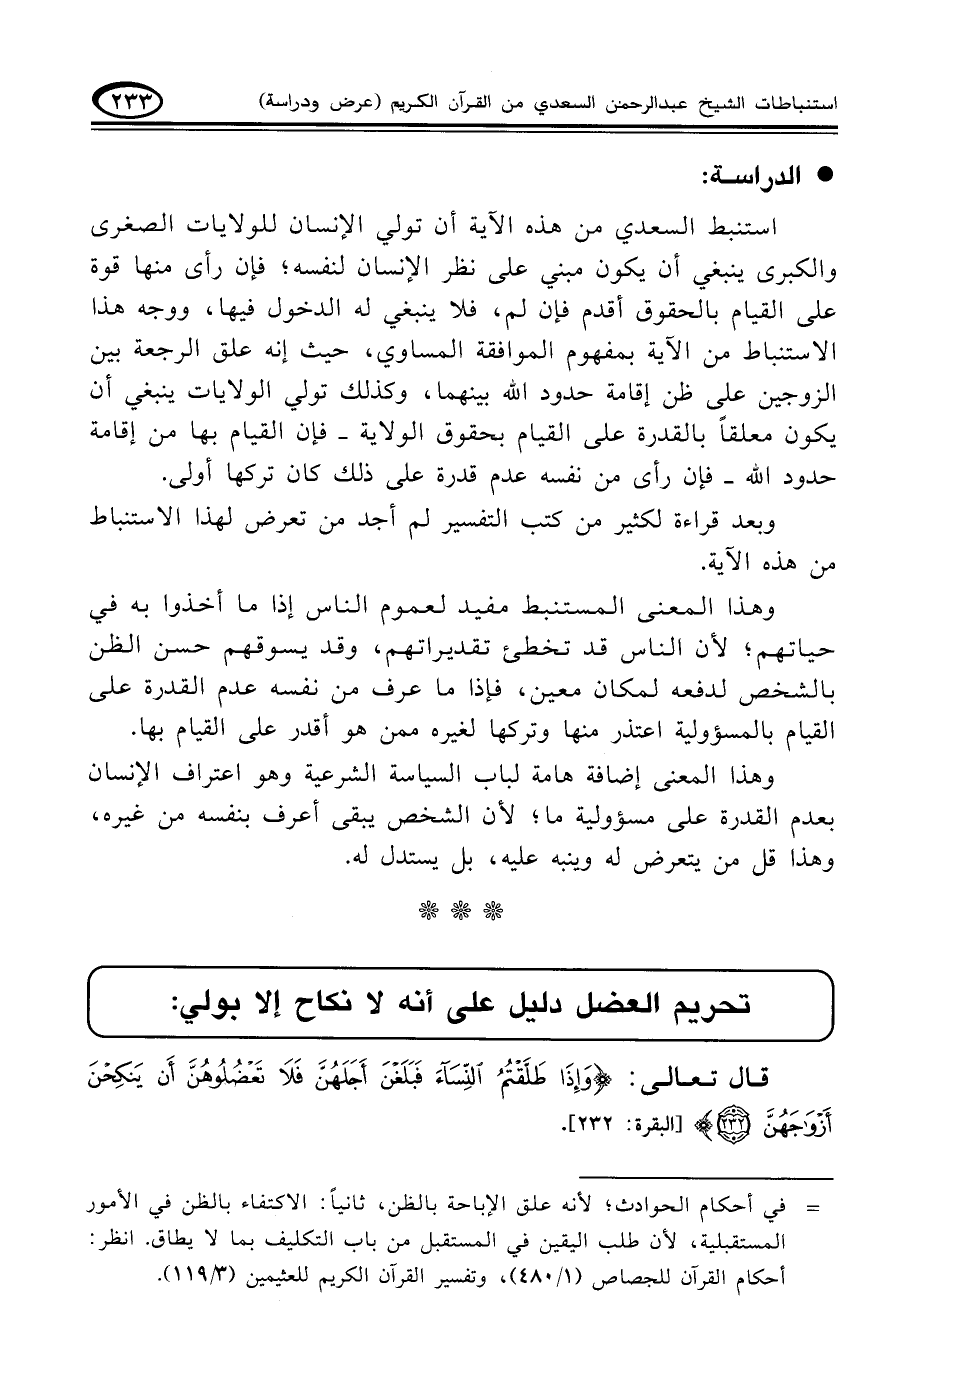 استنباطات الشيخ عبدالرحمن السعدي من القرآن الكريم (عرض ودراسة) ٢٣٣
● الدراسـة:
استنبط السعدي من هذه الآية أن تولي الإنسان للولايات الصغرى
والكبرى ينبغي أن يكون مبني على نظر الإنسان لنفسه؛ فإن رأى منها قوة
على القيام بالحقوق أقدم فإن لم، فلا ينبغي له الدخول فيها، ووجه هذا
الاستنباط من الآية بمفهوم الموافقة المساوي، حيث إنه علق الرجعة بين
الزوجين على ظن إقامة حدود الله بينهما، وكذلك تولي الولايات ينبغي أن
يكون معلقاً بالقدرة على القيام بحقوق الولاية ـ فإن القيام بها من إقامة
حدود الله ـ فإن رأى من نفسه عدم قدرة على ذلك كان تركها أولى.
وبعد قراءة لكثير من كتب التفسير لم أجد من تعرض لهذا الاستنباط
من هذه الآية.
وهذا المعنى المستنبط مفيد لعموم الناس إذا ما أخذوا به في
حياتهم؛ لأن الناس قد تخطئ تقديراتهم، وقد يسوقهم حسن الظن
بالشخص لدفعه لمكان معين، فإذا ما عرف من نفسه عدم القدرة على
القيام بالمسؤولية اعتذر منها وتركها لغيره ممن هو أقدر على القيام بها.
وهذا المعنى إضافة هامة لباب السياسة الشرعية وهو اعتراف الإنسان
بعدم القدرة على مسؤولية ما؛ لأن الشخص يبقى أعرف بنفسه من غيره،
وهذا قل من يتعرض له وينبه عليه، بل يستدل له.
❊ ❊ ❊
تحريم العضل دليل على أنه لا نكاح إلا بولي:
قال تعالى: ﴿وَإِذَا طَلَّقْتُمُ ٱلنِّسَآءَ فَبَلَغْنَ أَجَلَهُنَّ فَلَا تَعْضُلُوهُنَّ أَن يَنكِحْنَ
أَزْوَٰجَهُنَّ ٢٣٢﴾ [البقرة: ٢٣٢].
= في أحكام الحوادث؛ لأنه علق الإباحة بالظن، ثانياً: الاكتفاء بالظن في الأمور
المستقبلية، لأن طلب اليقين في المستقبل من باب التكليف بما لا يطاق. انظر:
أحكام القرآن للجصاص (٤٨٠/١)، وتفسير القرآن الكريم للعثيمين (١١٩/٣).